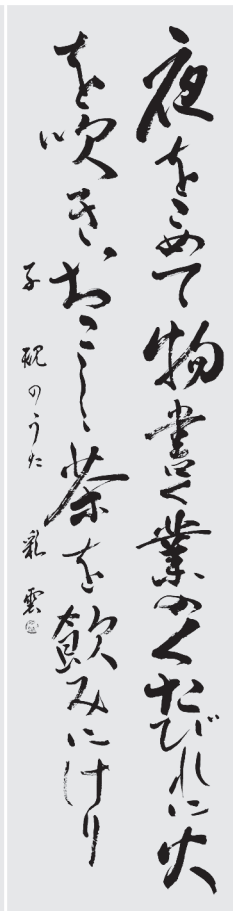 夜をこめて物書く業のくたびれに火
を吹きおこし茶を飲みにけり
子規のうた 彩雲